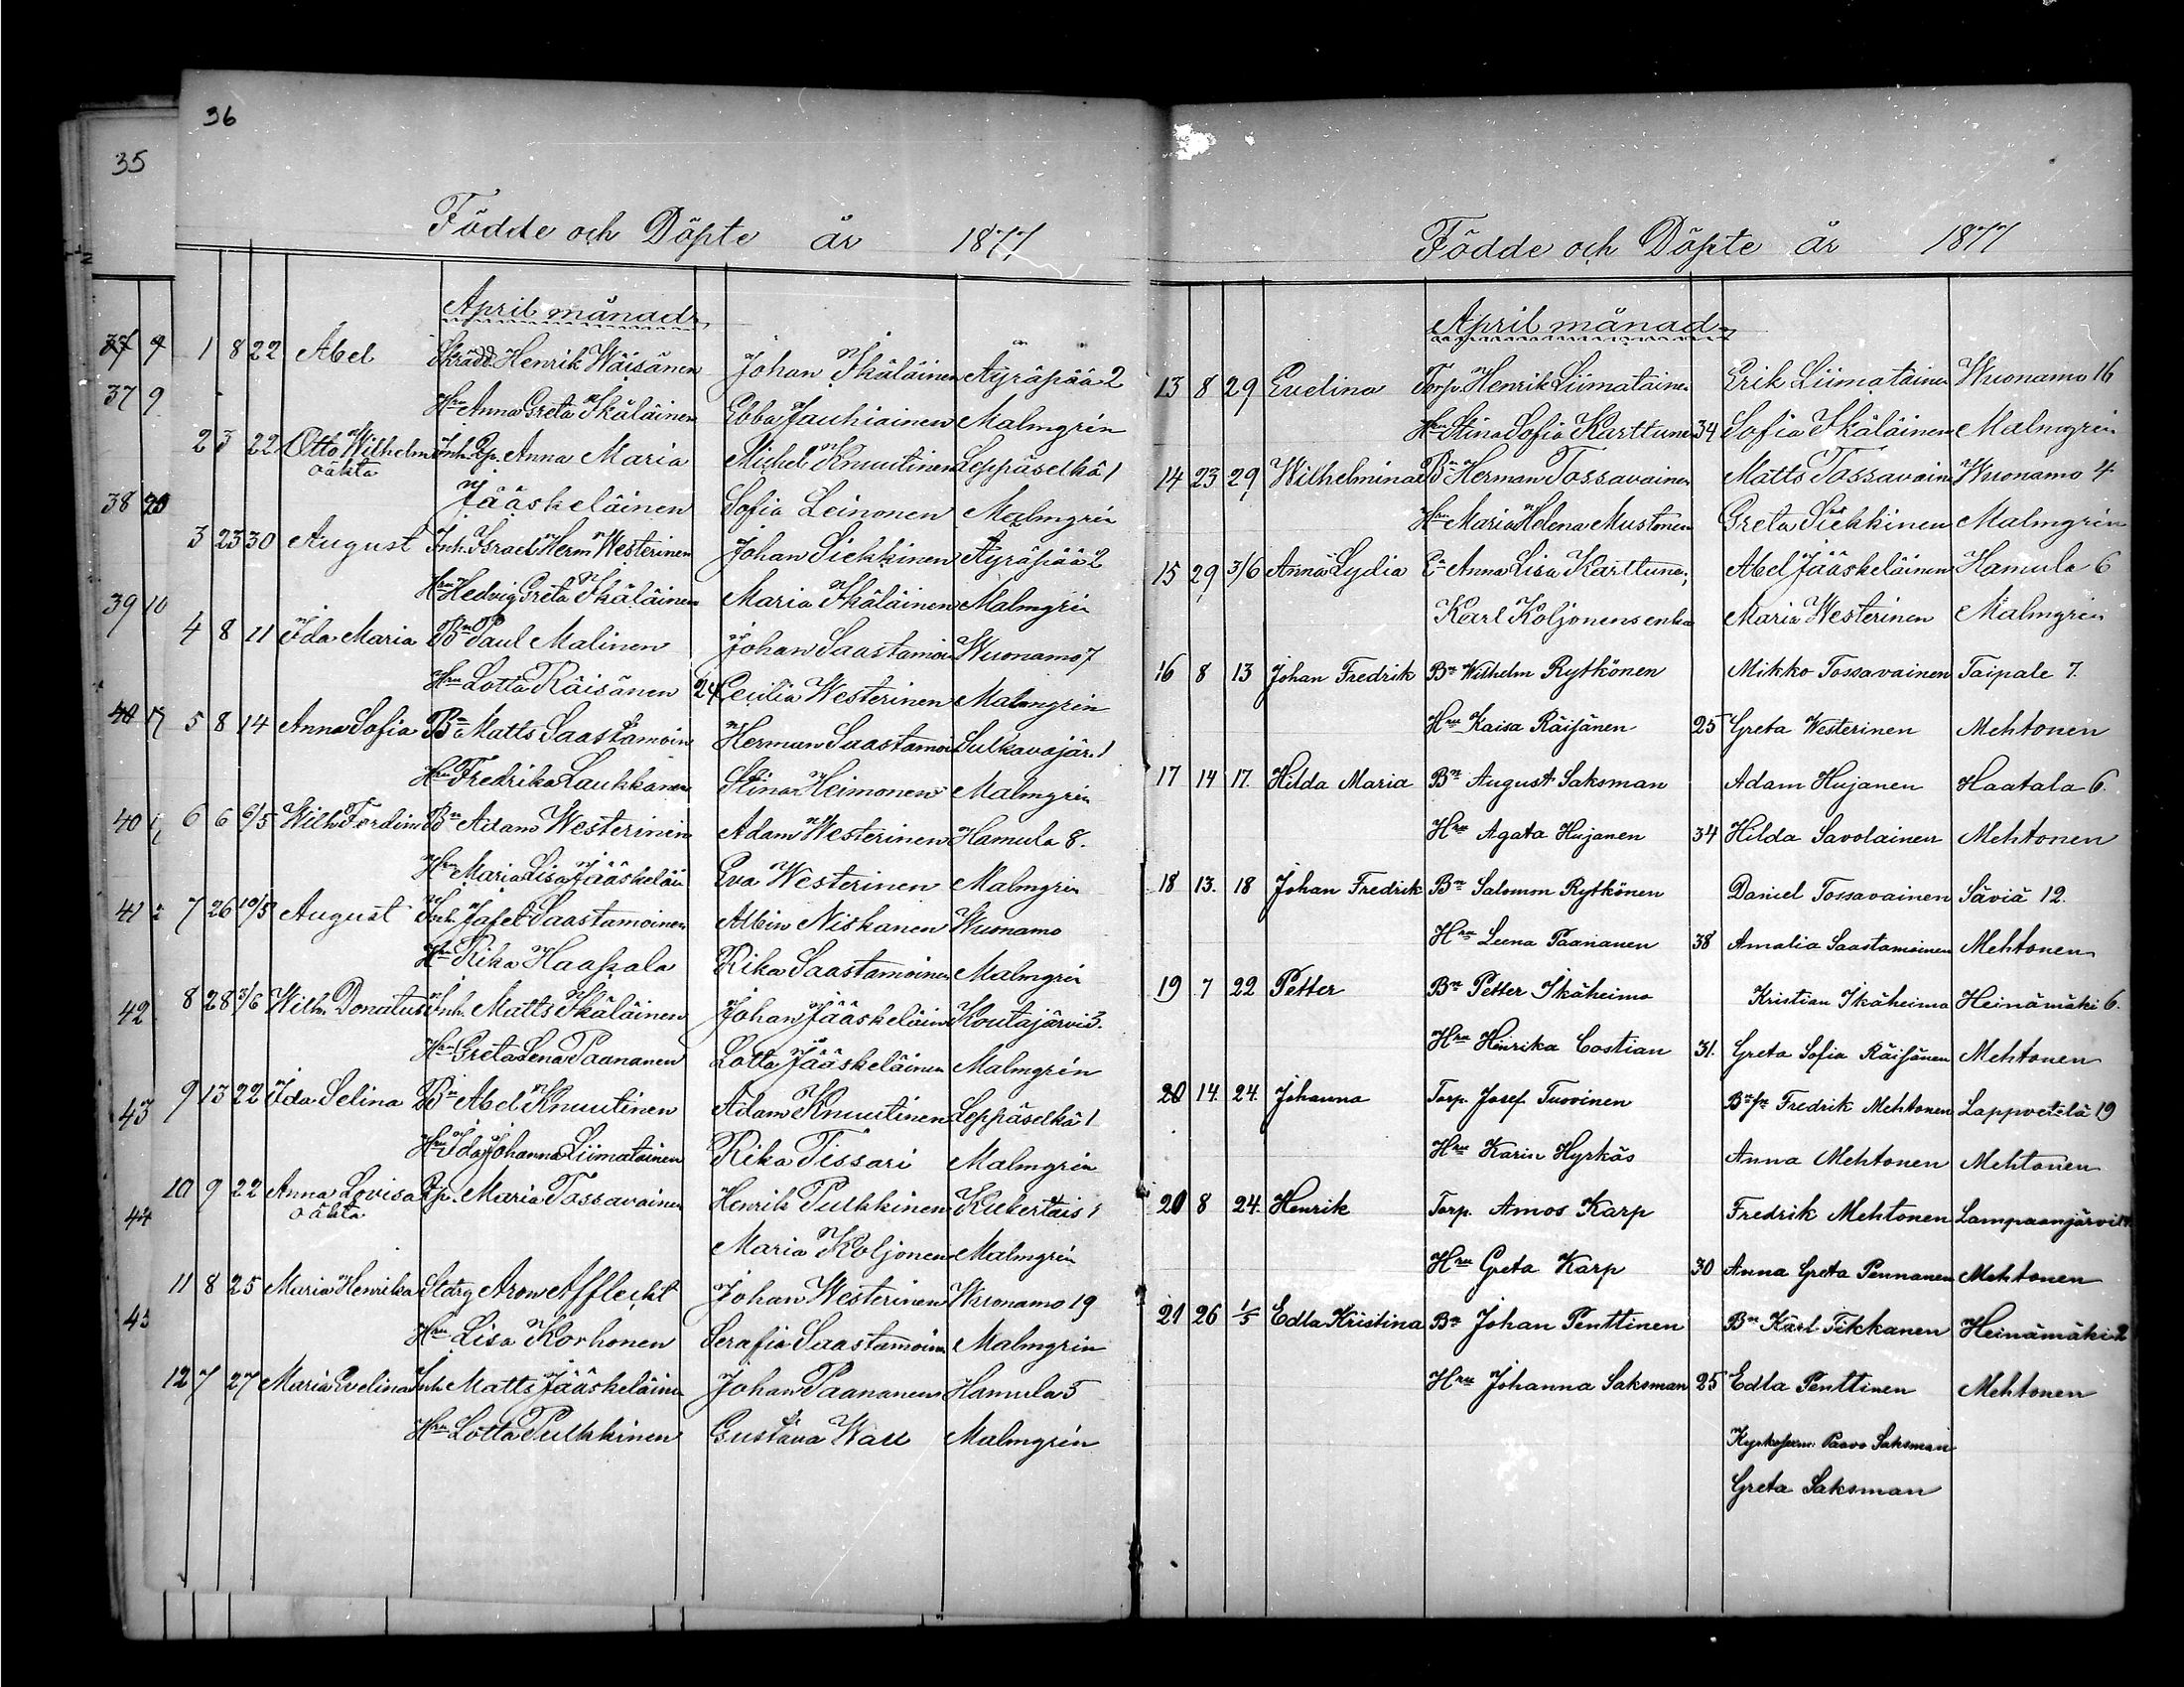 36
35
Födde och Döpte år 1877
April månad
37 9
1 8 22 Abel Skrädd Henrik Wäisänen Johan Ikäläinen Äyräpää 2
37 9
Hru Anna Greta Ikäläinen Ebba Jauhiainen Malmgrén
2 3 22 Otto Wilhelm Inh. Rp. Anna Maria Michel Knuutinen Leppäselkä 1
oäkta
38 20
Jääskeläinen Sofia Leinonen Malmgrén
3 23 30 August Inh. Israel Herm Westerinen Johan Siekkinen Äyräpää 2
Hru Hedvig Greta Ikäläinen Maria Ikäläinen Malmgrén
39 10
4 8 11 Ida Maria Bn Paul Malinen Johan Saastamoi Wuonamo 7
Hru Lotta Räisänen 24 Cecilia Westerinen Malmgrén
40 17
5 8 14 Anna Sofia Bn Matts Saastamoin Herman Saastamoi Sulkavajär. 1
Hru Fredrika Laukkanen Stina Heimonen Malmgrén
40
6 6 6/5 Wilh. Ferdin Bn Adam Westerinen Adam Westerinen Hamula 8.
Hru Maria Lisa Jääskeläi Eva Westerinen Malmgrén
41
7 26 10/5 August Inh. Jafet Saastamoinen Albin Niskanen Wuonamo
Hru Rika Haapala Rika Saastamoinen Malmgrén
42
8 28 3/6 Wilh. Donatus Inh. Matts Ikäläinen Johan Jääskeläine Koutajärvi 3.
Hru Greta Lena Paananen Lotta Jääskeläinen Malmgrén
43
9 13 22 Ida Selina Bn Abel Knuutinen Adam Knuutinen Leppäselkä 1
Hru Ida Johanna Liimatainen Rika Tissari Malmgrén
10 9 22 Anna Lovisa Rp. Maria Tossavainen Henrik Pulkkinen Kukertais 1
oäkta
44
Maria Koljonen Malmgrén
11 8 25 Maria Henrika Starg Aron Afflecht Johan Westerinen Wuonamo 19
45
Hru Lisa Korhonen Serafia Saastamoine Malmgrén
12 7 27 Maria Evelina Inh. Matts Jääskeläine Johan Paananen Hamula 5
Hru Lotta Pulkkinen Gustava Malmgrén
Födde och Döpte år 1877
April månad
13 8 29 Evelina Torp. Henrik Liimatainen Erik Liimatainen Wuonamo 16
Hru Stina Sofia Karttunen 34 Sofia Ikäläinen Malmgrén
14 23 29 Wilhelmina Bn Herman Tossavainen Matts Tossavaine Wuonamo 4
Hru Maria Helena Mustonen Greta Siekkinen Malmgrén
15 29 3/6 Anna Lydia Anna Lisa Karttune, Abel Jääskeläinen Hamula 6
Karl Koljonens enka Maria Westerinen Malmgrén
16 8 13 Johan Fredrik Bn Wilhelm Rytkönen Mikko Tossavainen Taipale 7.
Hru Kaisa Räisänen 25 Greta Westerinen Mehtonen
17 14 17. Hilda Maria Bn August Saksman Adam Hujanen Haatala 6.
Hru Agata Hujanen 34 Hilda Savolainen Mehtonen
18 13. 18 Johan Fredrik Bn Salomon Rytkönen Daniel Tossavainen Säviä 12.
Hru Leena Paananen 38 Amalia Saastamoinen Mehtonen
19 7 22 Petter Bn Petter Ikäheimo Kristian Ikäheimo Heinämäki 6.
Hru Hinrika Costian 31. Greta Sofia Räisänen Mehtonen
20 14. 24. Johanna Torp. Josef Tuovinen Fredrik Mehtonen Lappvetelä 19
Hru Karin Hyrkäs Anna Mehtonen Mehtonen
20 8 24. Henrik Torp. Amos Karp Fredrik Mehtonen Lampaanjärvi
Hru Greta Karp 30 Anna Greta Pennanen Mehtonen
21 26 1/5 Edla Kristina Bn Johan Penttinen Bn Karl Tikkanen Heinämäki 2
Hru Johanna Saksman 25 Edla Penttinen Mehtonen
Paavo Saksman
Greta Saksman